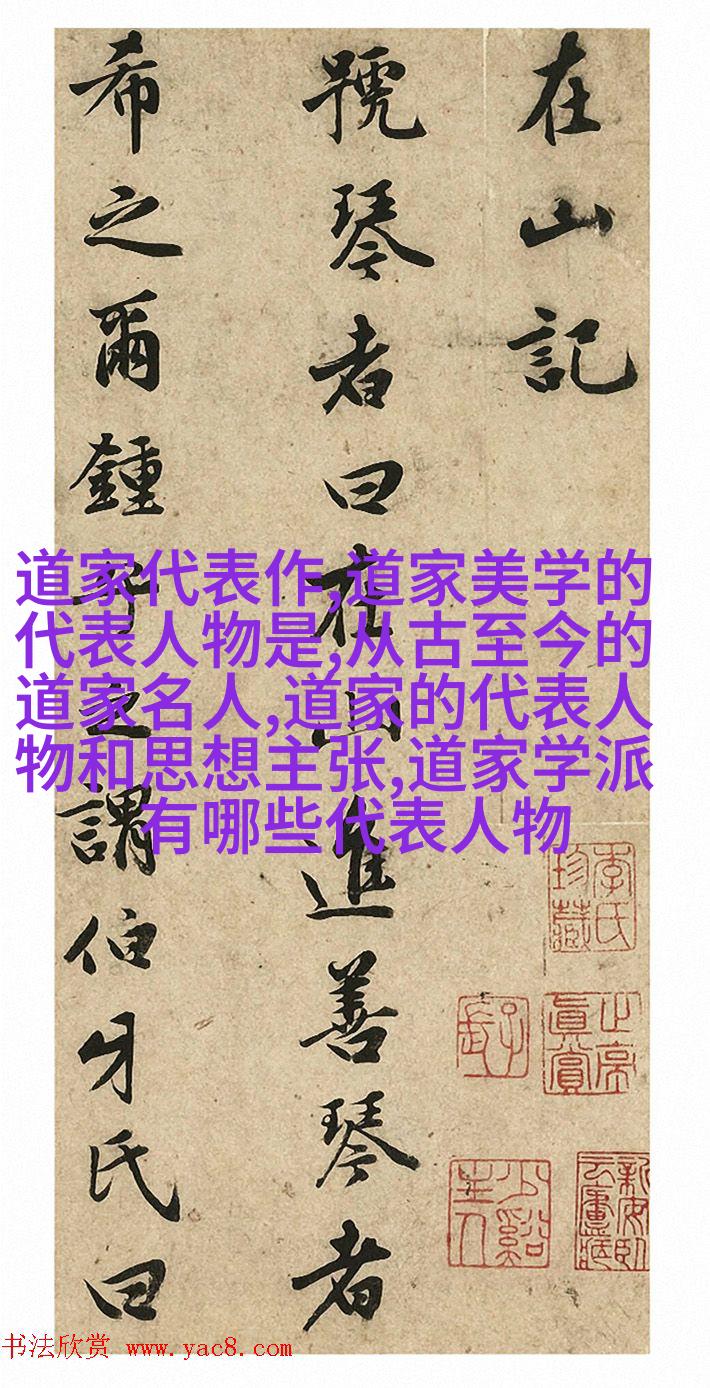 在山記
號琴者曰在山進善琴者
希之爾鍾子謂伯牙氏曰
道家代表作,道家美学的
代表人物是,从古至今的
道家名人,道家的代表人
物和思想主张,道家学派
有哪些代表人物
李氏
珍藏
真賞
少谿
主人
书法欣赏 www.yac8.com